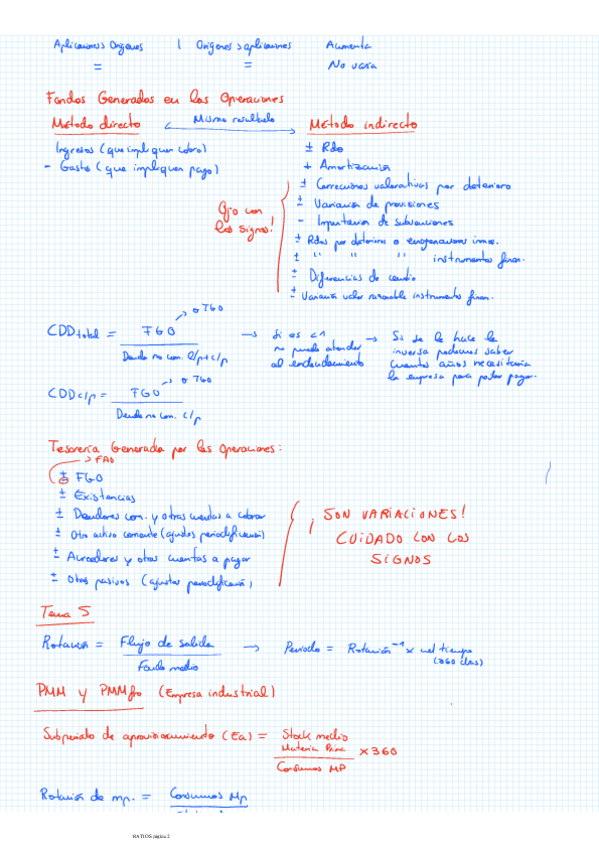 Aplicaciones > Orígenes | Orígenes > aplicaciones Aumenta
= = No varía
Fondos Generados en las Operaciones
Método directo Mismo resultado Método indirecto
Ingresos (que impliquen cobro) ± Rdo
- Gastos (que impliquen pago) + Amortización
± Correcciones valorativas por deterioro
± Variación de provisiones
Ojo con los signos!
- Imputación de subvenciones
± Rdos por deterioro o enajenaciones inmov.
± " " " instrumentos finan.
± Diferencias de cambio
± Variación valor razonable instrumentos finan.
CDD total = FGO / Deuda no com. l/p + c/p → o TGO
→ Si es < 1 no puede atender al endeudamiento
→ Si se le hace la inversa podemos saber cuantos años necesitaría la empresa para poder pagar.
CDD c/p = FGO / Deuda no com. c/p → o TGO
Tesorería Generada por las Operaciones:
→ FAO
± FGO
± Existencias
± Deudores com. y otras cuentas a cobrar
± Otro activo corriente (ajustes periodificación)
± Acreedores y otras cuentas a pagar
± Otros pasivos (ajustes periodificación)
¡SON VARIACIONES!
CUIDADO CON LOS
SIGNOS
Tema 5
Rotación = Flujo de salida / Fondo medio → Periodo = Rotación⁻¹ x
(360 días)
PMM y PMMfro (Empresa industrial)
Subperiodo de aprovisionamiento (Ea) = Stock medio Materia Prima / Consumos MP x 360
Rotación de mp. = Consumos Mp
RATIOS página 2